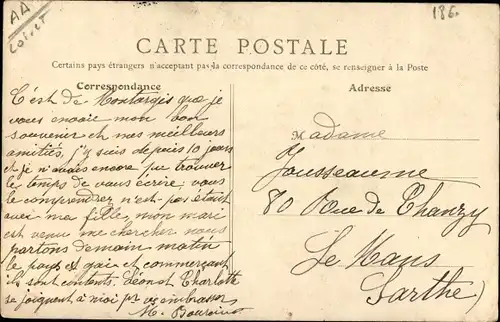 AA
Loiret
186
CARTE POSTALE
Certains pays étrangers n'acceptant pas la correspondance de ce côté, se renseigner à la Poste
Correspondance
C'est de Montargis que je
vous envoie mon bon
souvenir et nos meilleurs
amitiés, j'y suis depuis 10 jours
et je n'avais encore pu trouver
le temps de vous écrire, vous
le comprendrez n'est-pas étant
avec ma fille, mon mari
est venu me chercher nous
partons demain matin
le pays est gai et commerçant
ils sont contents. Léonot Charlotte
se joignent à moi pr vs embrasser
M.
Adresse
Madame
Jousseaume
80 Rue de Chanzy
Le Mans
Sarthe)